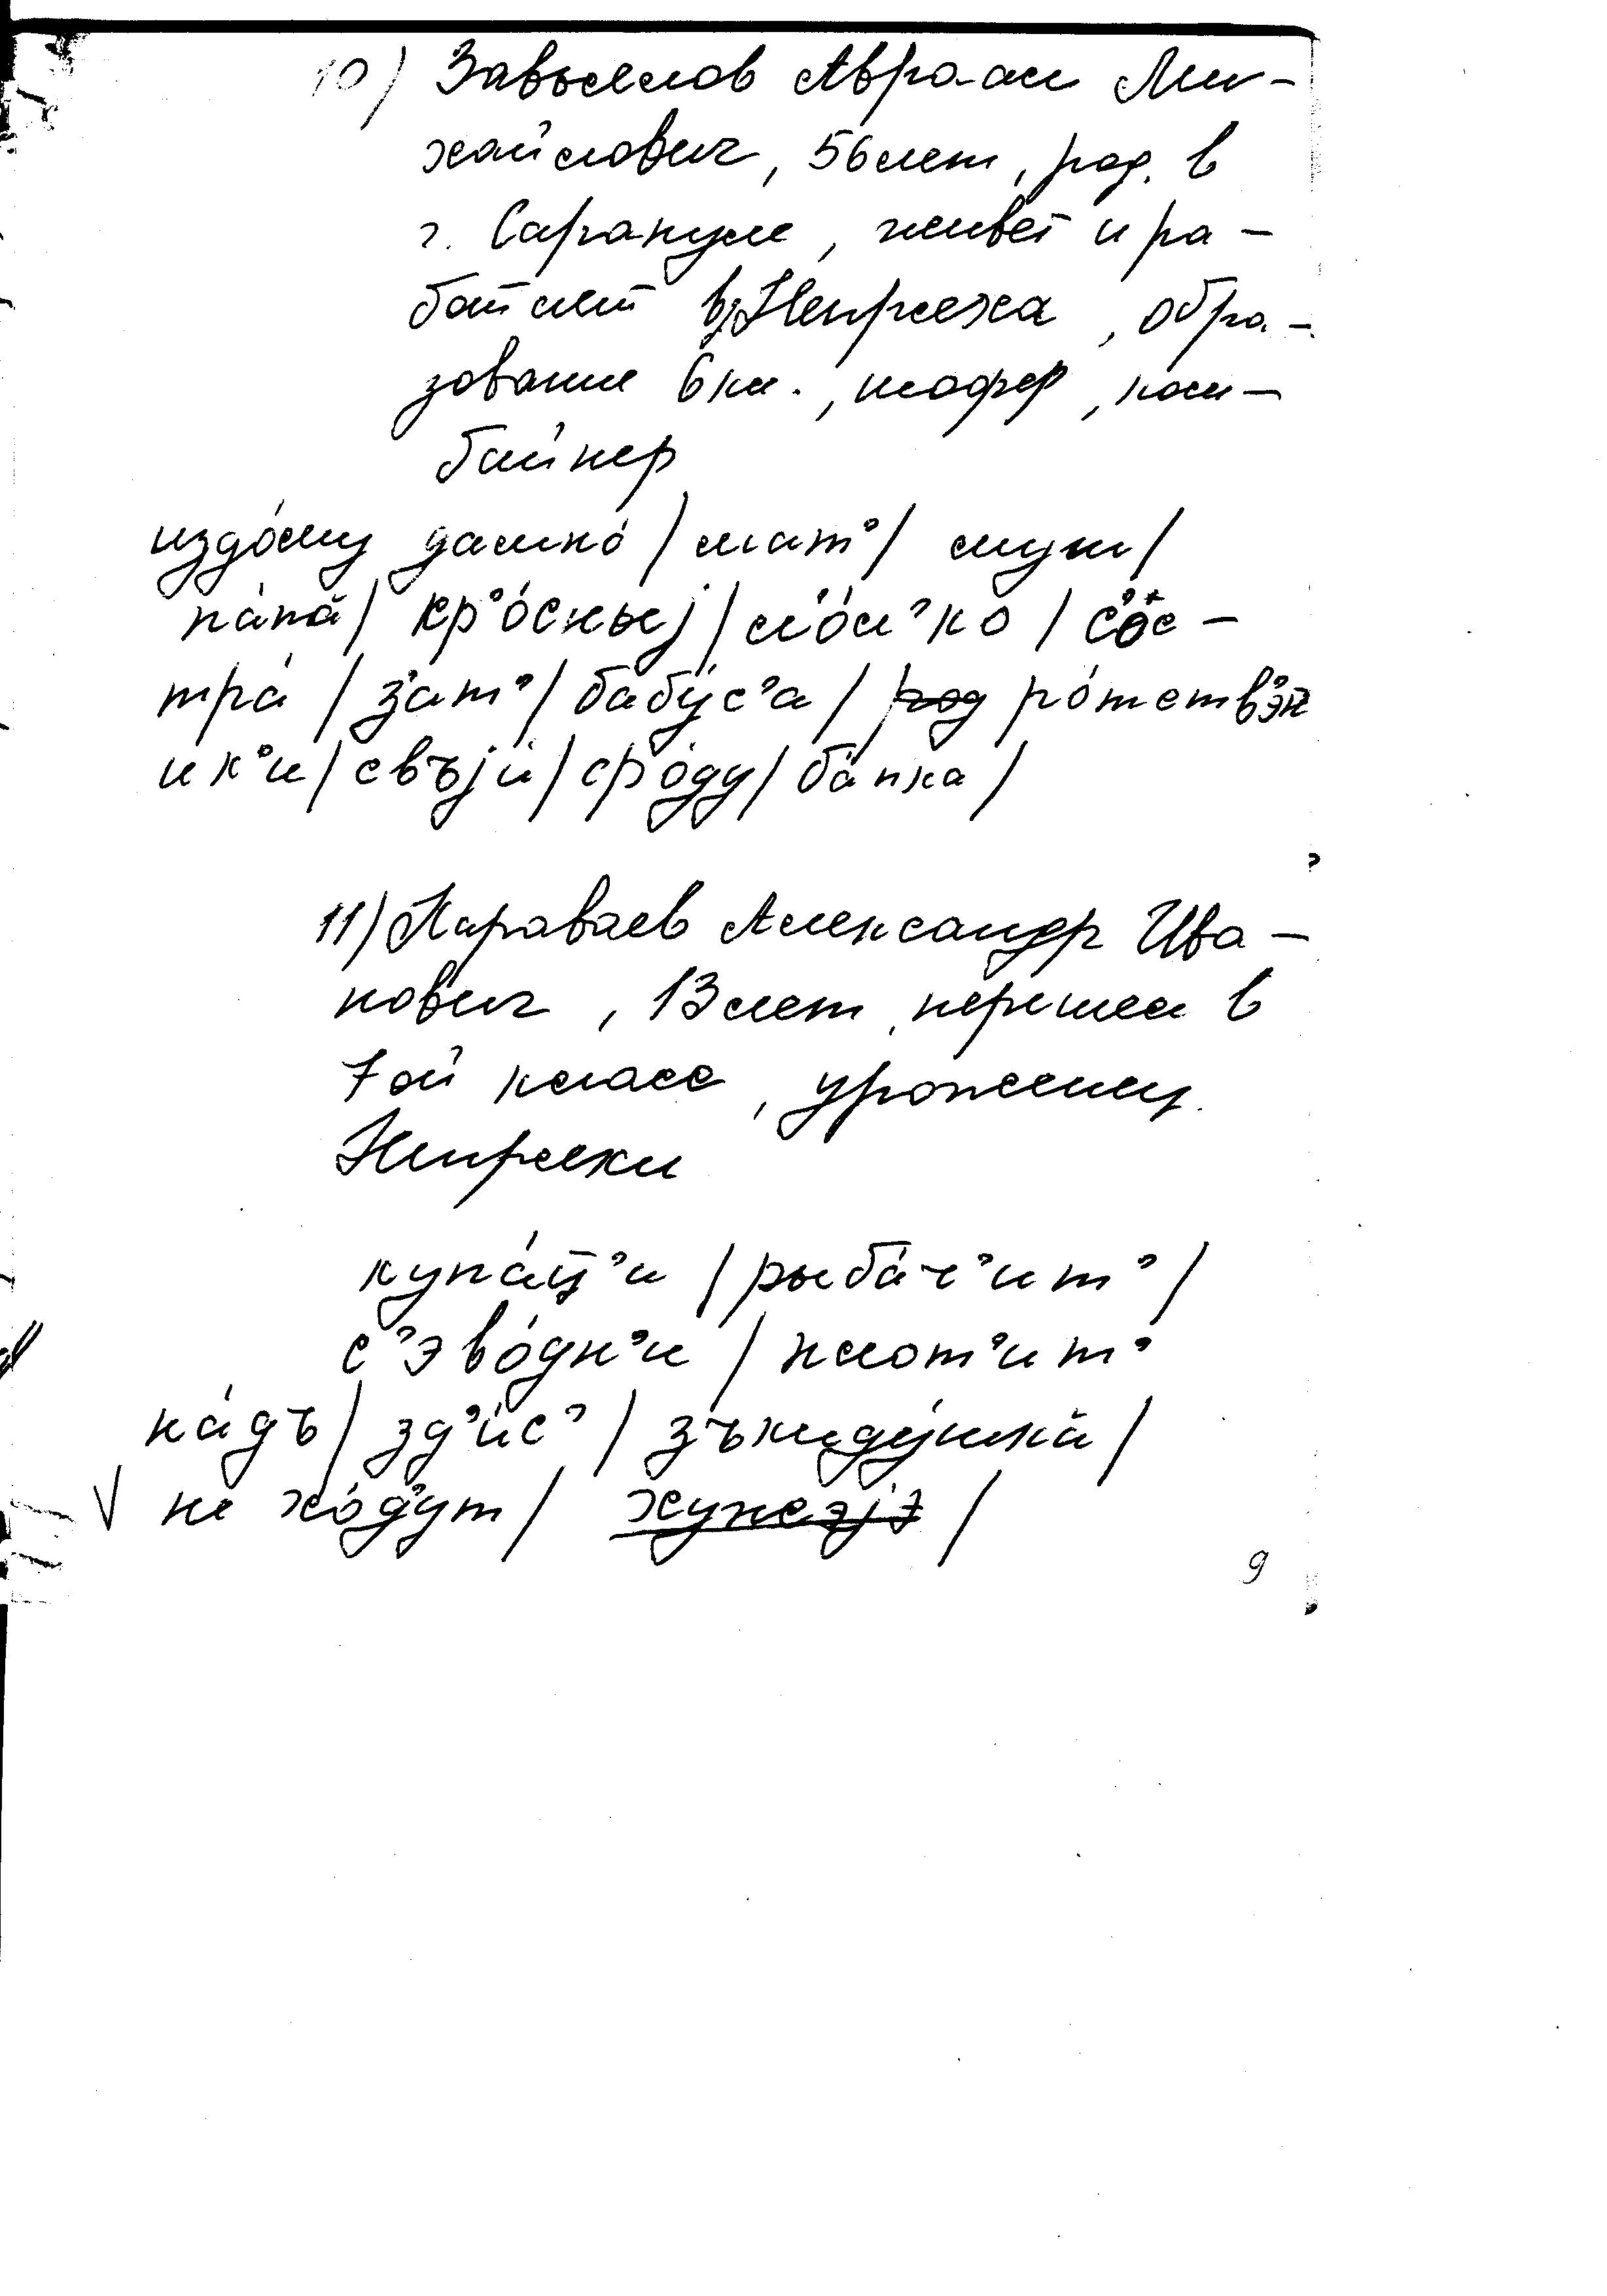 10) Завьялов Авраам Ми-
хайлович, 56 лет, род. в
г. Сарапуле, живёт и ра-
ботает в Непряхе, обра-
зование 6 кл., шофер, ком-
байнер
издо́му далико́ / мат' / муш /
па́па / кр'о́сныj / л'о́л'ко / с'ос-
тра́ / з'ат' / бабу́с'а / ро́тств'эн
ик'и / свъjи́ / сро́ду / ба́пка /
11) Караваев Александр Ива-
нович, 13 лет, перешел в
7ой класс, уроженец
Непряхи
купа́ц'и / рыба́ч'ит' /
с'эво́дн'и / плот'ит'
на́дъ / зд'ис' / зъкиду́шка /
V не хо́д'ут /
9